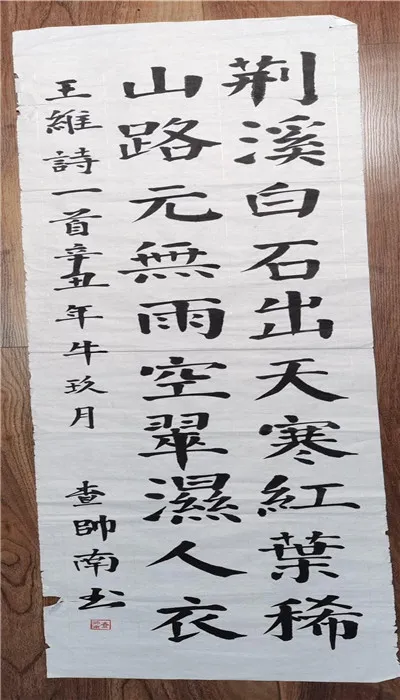 荆溪白石出天寒紅葉稀
山路元無雨空翠濕人衣
王維詩一首辛丑年牛玖月
查帥南书